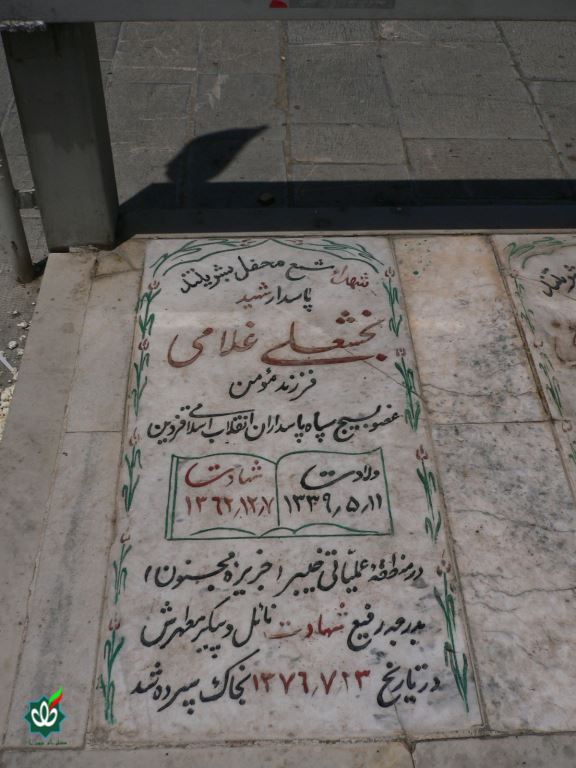 شهدا شمع محفل بشریتند
پاسدار شهید
بخشعلی غلامی
فرزند مؤمن
عضو بسیج سپاه پاسداران انقلاب اسلامی قزوین
ولادت شهادت
۱۳۳۹٫۵٫۱۱ ۱۳۶۲٫۱۲٫۷
در منطقه عملیاتی خیبر (جزیره مجنون)
بدرجه رفیع شهادت نائل و پیکر مطهرش
در تاریخ ۱۳۷۶٫۷٫۲۳ بخاک سپرده شد